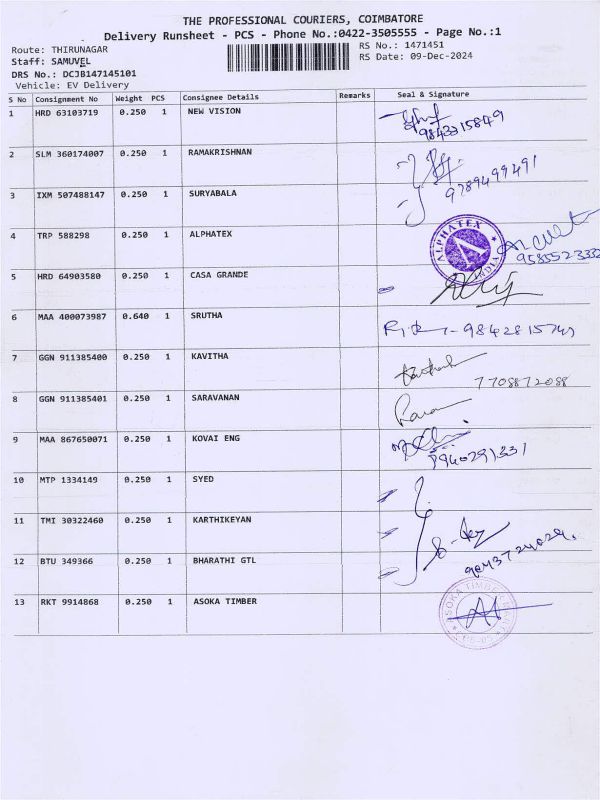 THE PROFESSIONAL COURIERS, COIMBATORE
Delivery Runsheet - PCS - Phone No.:0422-3505555 - Page No.:1
Route: THIRUNAGAR
RS No.: 1471451
Staff: SAMUVEL
RS Date: 09-Dec-2024
DRS No.: DCJB147145101
Vehicle: EV Delivery
S No Consignment No Weight PCS Consignee Details Remarks Seal & Signature
1 HRD 63103719 0.250 1 NEW VISION
9843315849
2 SLM 360174007 0.250 1 RAMAKRISHNAN
9789499491
3 IXM 507488147 0.250 1 SURYABALA
4 TRP 588298 0.250 1 ALPHATEX
ALPHATEX INDIA
5 HRD 64903580 0.250 1 CASA GRANDE
6 MAA 400073987 0.640 1 SRUTHA
7 GGN 911385400 0.250 1 KAVITHA
7708872088
8 GGN 911385401 0.250 1 SARAVANAN
9 MAA 867650071 0.250 1 KOVAI ENG
10 MTP 1334149 0.250 1 SYED
11 TMI 30322460 0.250 1 KARTHIKEYAN
12 BTU 349366 0.250 1 BHARATHI GTL
13 RKT 9914868 0.250 1 ASOKA TIMBER